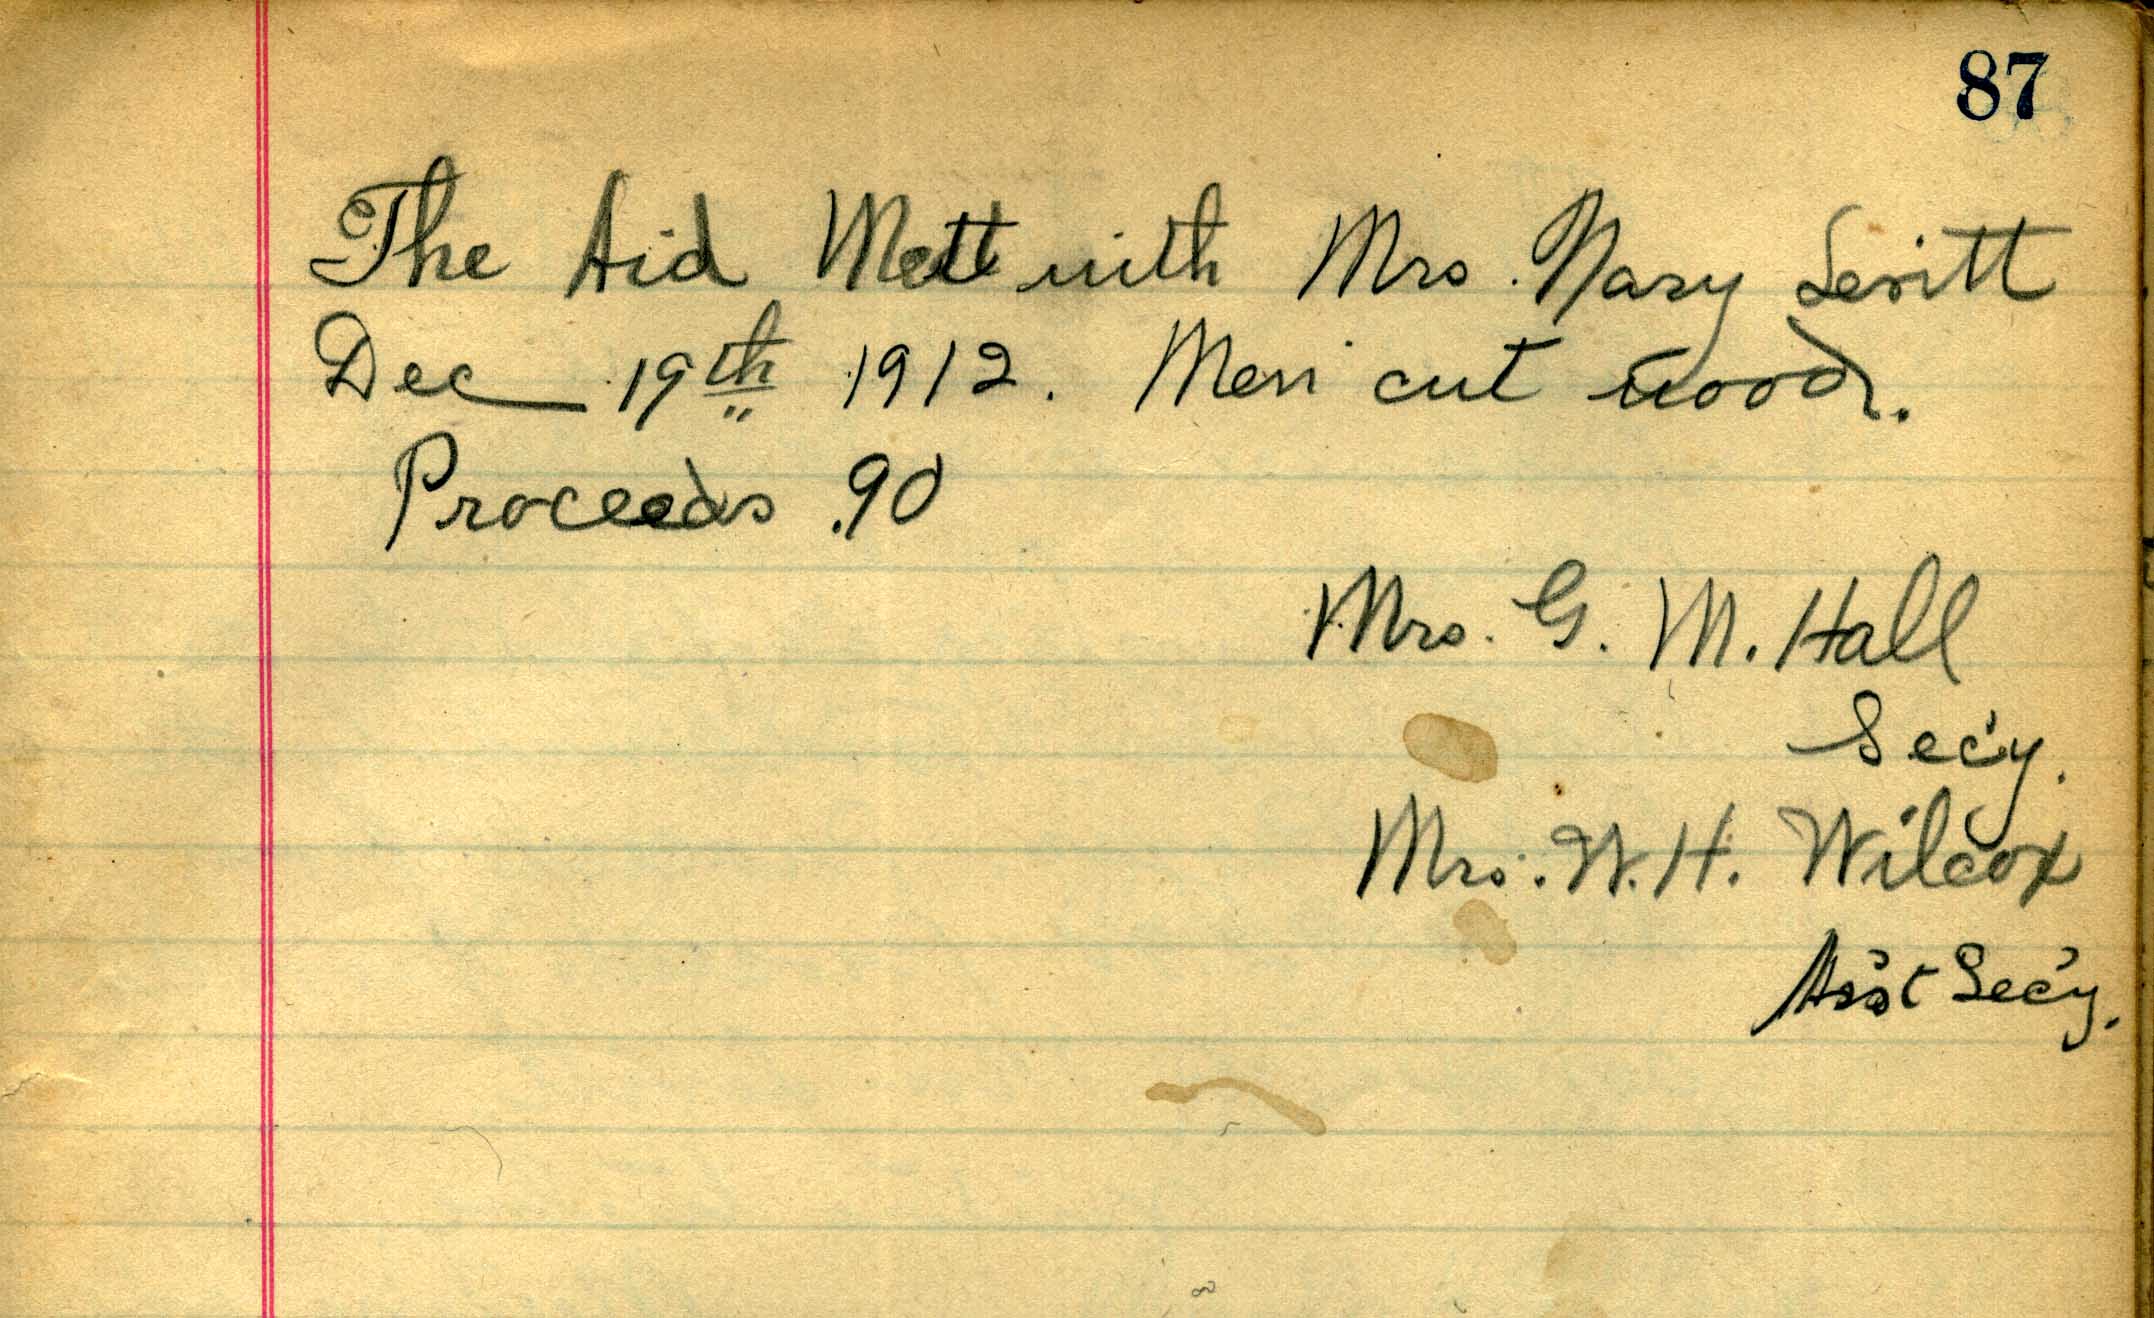 87
The Aid Mett with Mrs. Mary Levitt
Dec 19th 1912. Men cut wood.
Proceeds .90
Mrs. G. M. Hall
Sec'y.
Mrs. W. H. Wilcox
Ass't Sec'y.